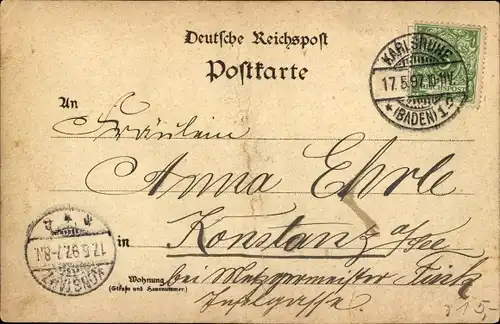 Deutsche Reichspost
Postkarte
KARLSRUHE
17.5.97. 10-11V.
* (BADEN) 1
An
Fräulein
Anna Ehrle
in Konstanz a/See
Wohnung
(Straße und Hausnummer)
bei Metzgermeister Fück
Inselgasse.
KONSTANZ
17.5.97. 7-8N
15,